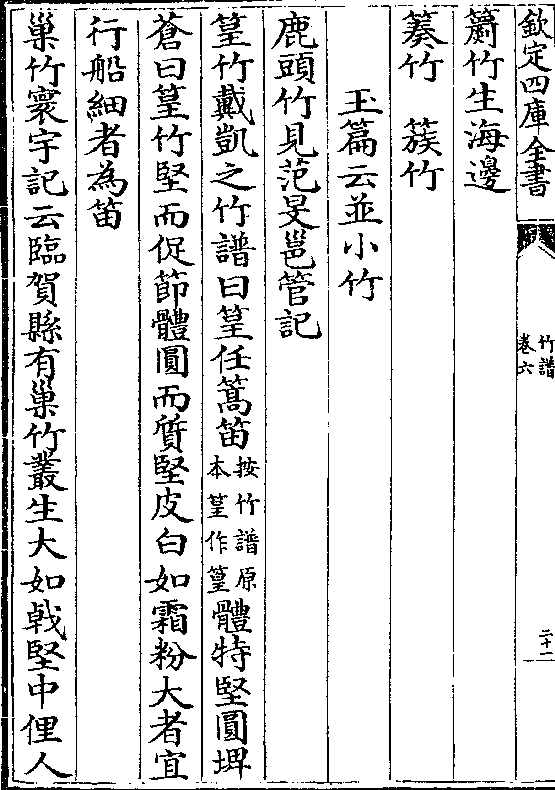 欽定四庫全書
竹譜
卷六
二十二
簫竹生海邊
蓁竹 簇竹
玉篇云並小竹
鹿頭竹見范旻邕管記
篁竹戴凱之竹譜曰篁任篙笛按竹譜原本篁作篁體特堅圓埤
蒼曰篁竹堅而促節體圓而質堅皮白如霜粉大者宜
行船細者為笛
巢竹寰宇記云臨賀縣有巢竹叢生大如㦸堅中俚人